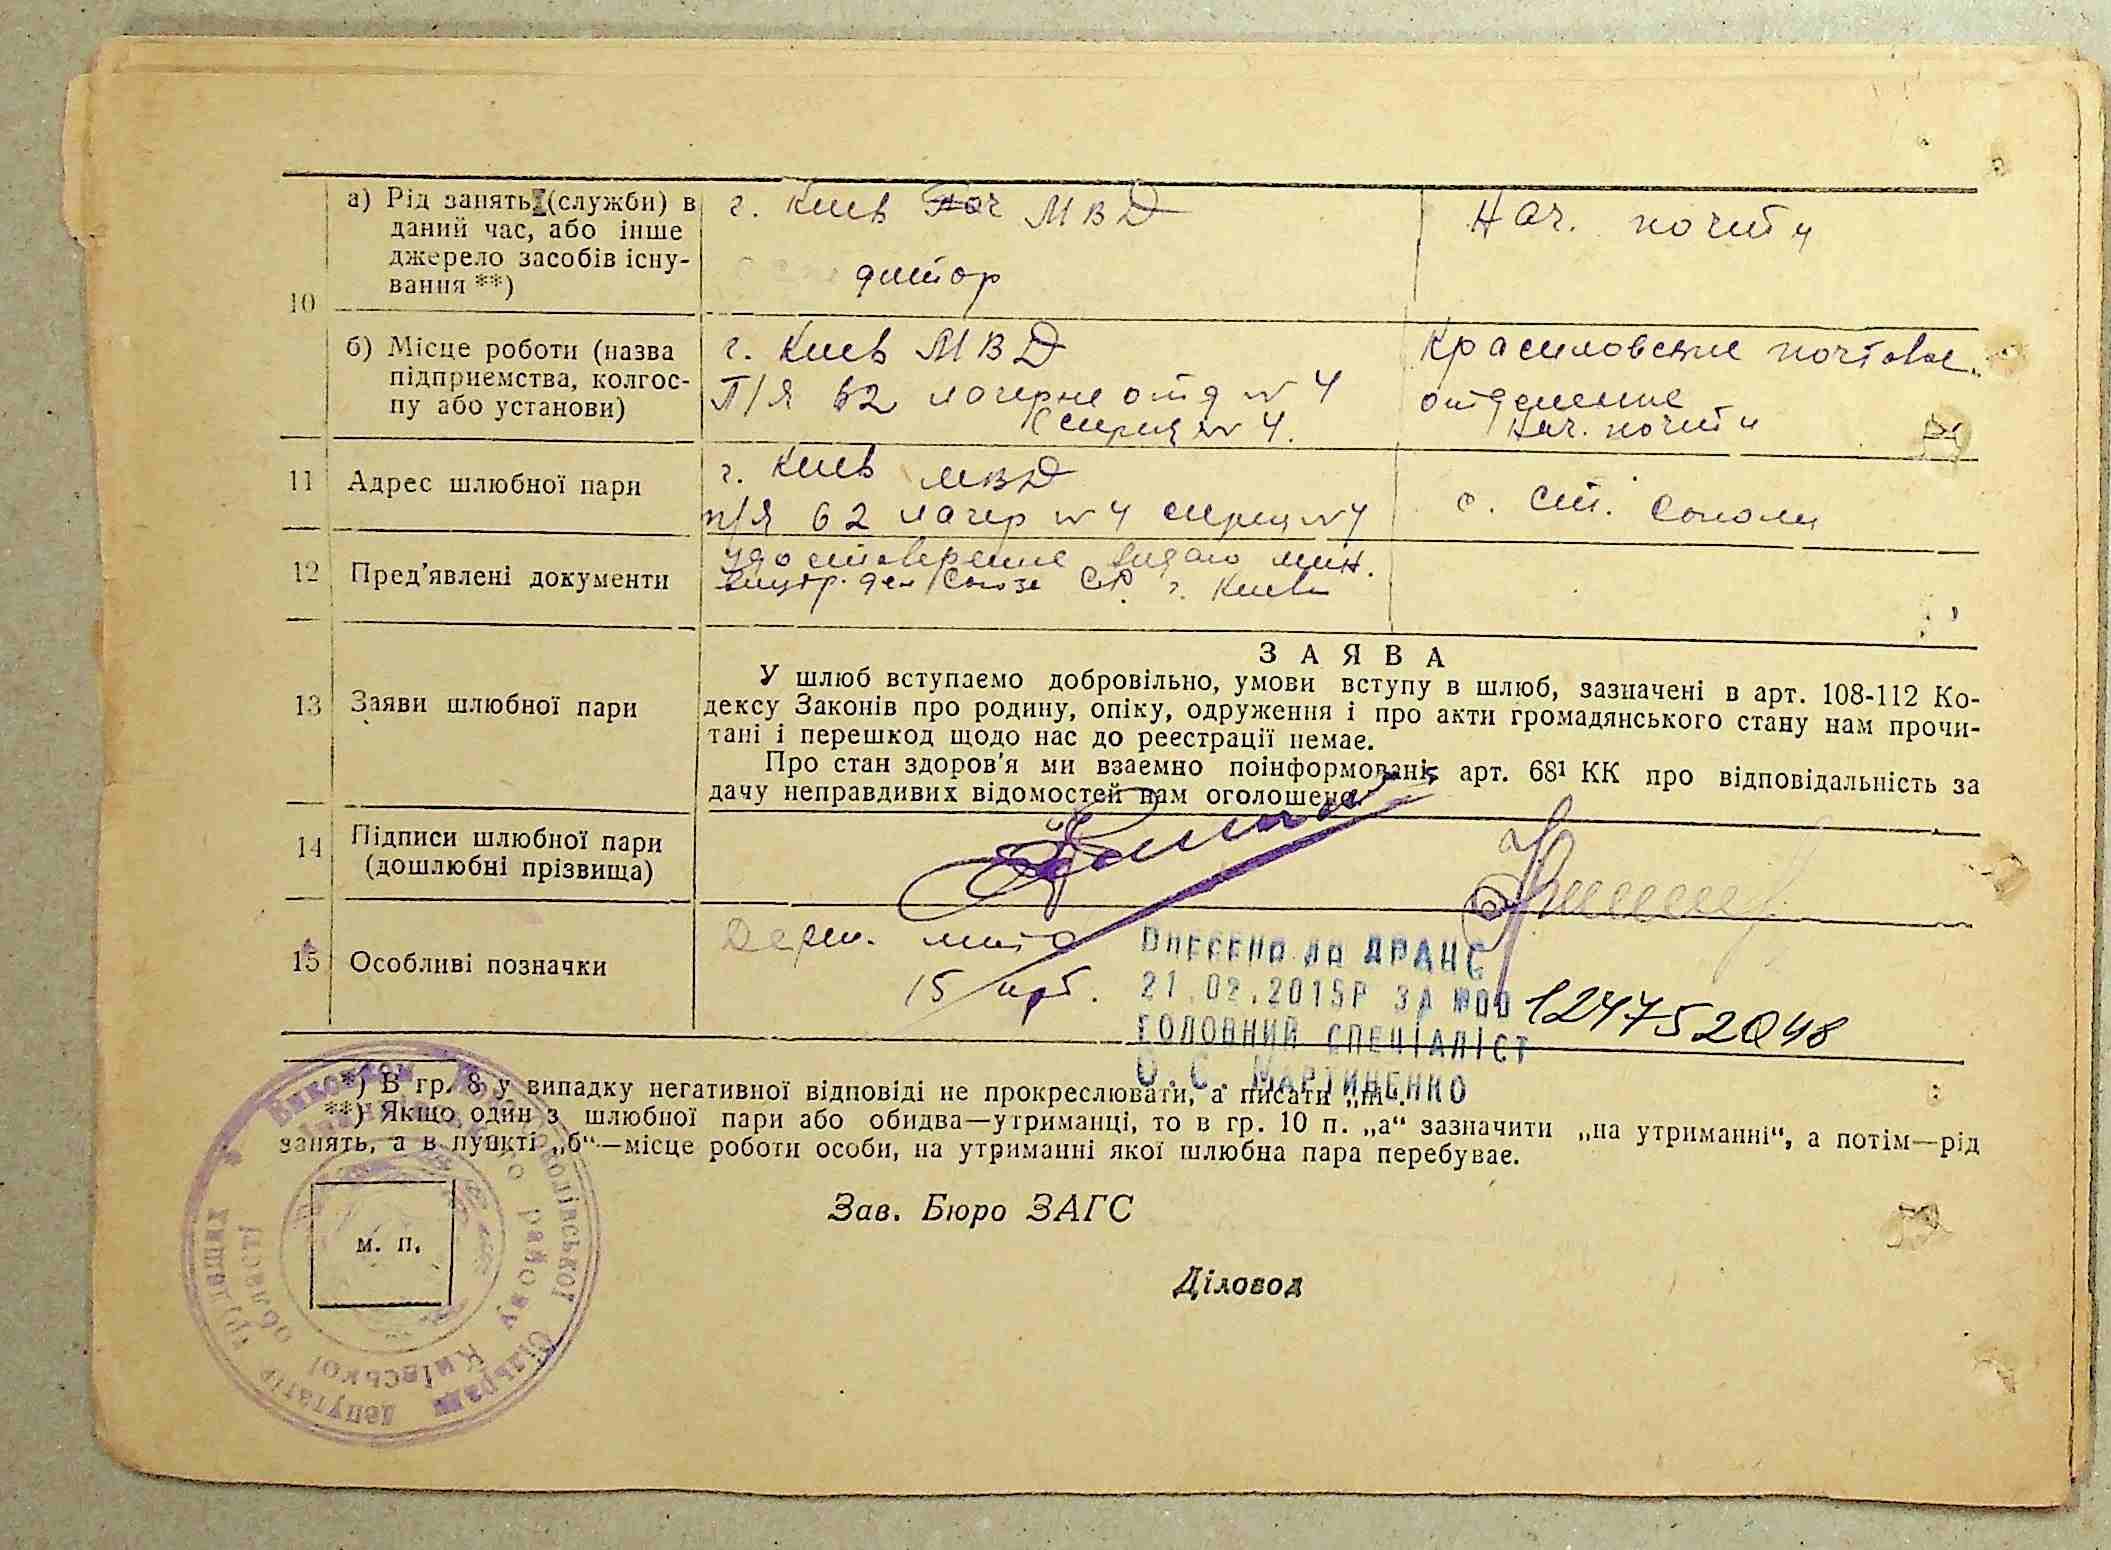 10
а) Рід занять (служби) в
даний час, або інше
джерело засобів існу-
вання **)
г. Киев МВД
дитор
Нач. почти
б) Місце роботи (назва
підприємства, колгос-
пу або установи)
г. Киев МВД
П/Я 62 лагерне отд № 4
№ 4.
Красиловские почтовое
отделение
Нач. почти
11
Адрес шлюбної пари
г. Киев МВД
п/я 62 лагер № 4 № 4
с. ст. Соколи
12
Пред'явлені документи
удостоверение видано мин.
внутр. дел Союза г. Киев
13
Заяви шлюбної пари
ЗАЯВА
У шлюб вступаємо добровільно, умови вступу в шлюб, зазначені в арт. 108-112 Ко-
дексу Законів про родину, опіку, одруження і про акти громадянського стану нам прочи-
тані і перешкод щодо нас до реєстрації немає.
Про стан здоров'я ми взаємно поінформовані, арт. 68¹ КК про відповідальність за
дачу неправдивих відомостей нам оголошено.
14
Підписи шлюбної пари
(дошлюбні прізвища)
15
Особливі позначки
Держ. мито
15 крб.
ВНЕСЕНО ДО ДРАЦС
21.02.2015Р ЗА №00 124752048
ГОЛОВНИЙ СПЕЦІАЛІСТ
О.С. МАРТИНЕНКО
*) В гр. 8 у випадку негативної відповіді не прокреслювати, а писати „ні“.
**) Якщо один з шлюбної пари або обидва—утриманці, то в гр. 10 п. „а“ зазначити „на утриманні“, а потім—рід
занять, а в пункті „б“—місце роботи особи, на утриманні якої шлюбна пара перебуває.
Зав. Бюро ЗАГС
м. п.
Діловод
Виконком
Сільради депутатів трудящих
району Київської області